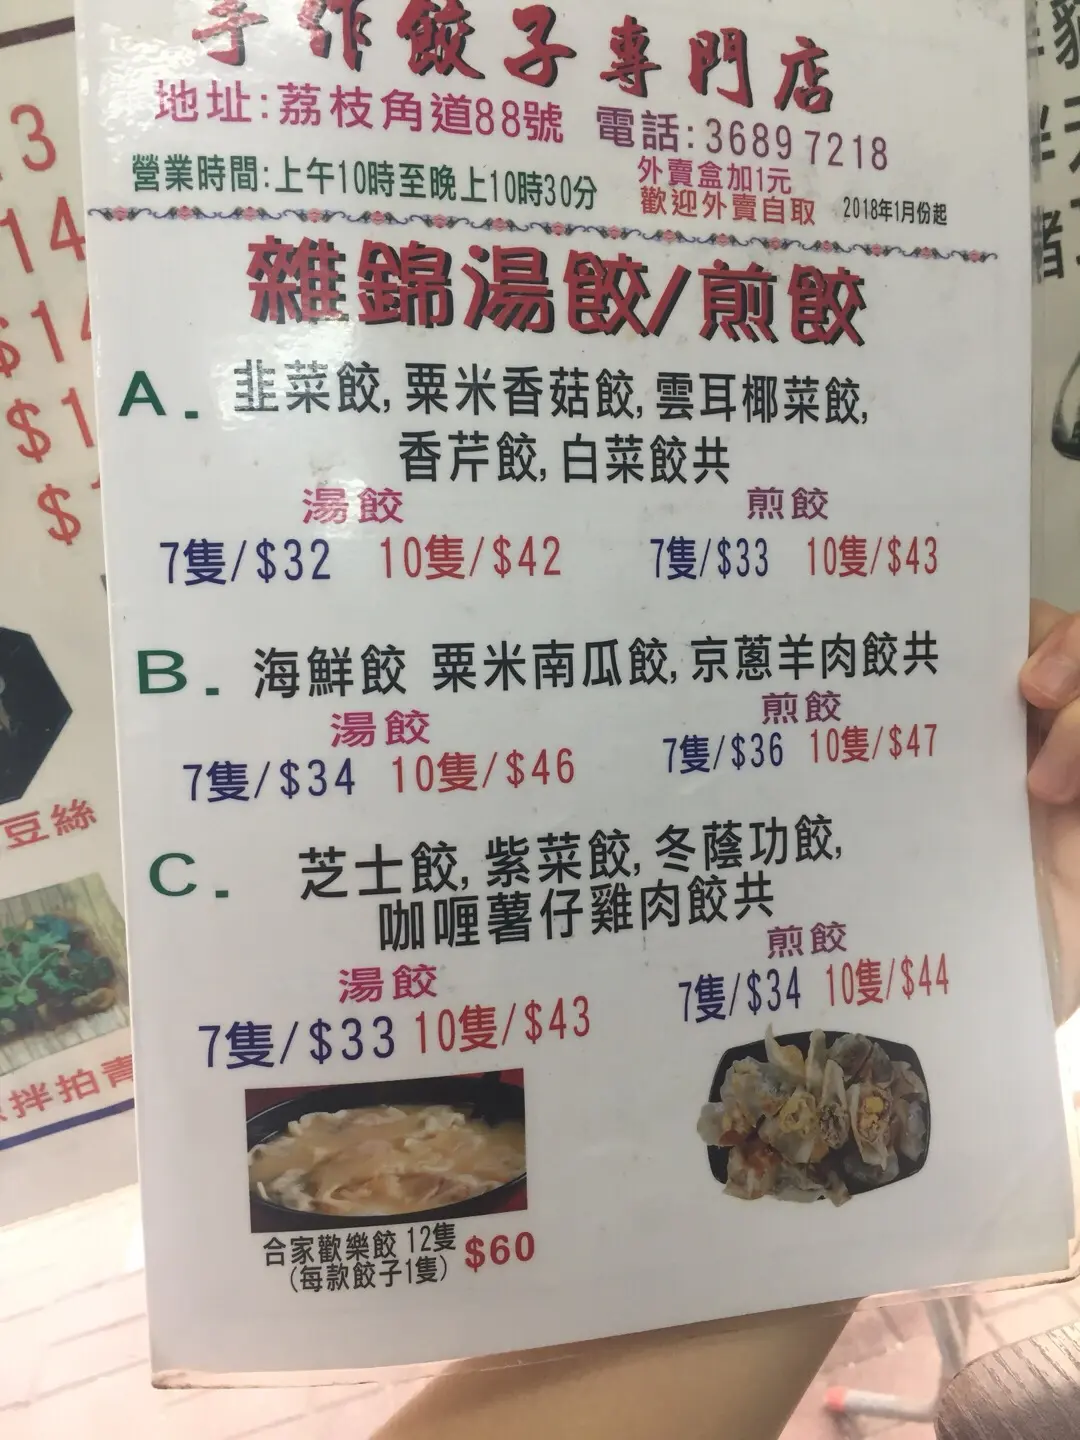 手作餃子專門店
地址:荔枝角道88號 電話:3689 7218
營業時間:上午10時至晚上10時30分
外賣盒加1元
歡迎外賣自取 2018年1月份起
雜錦湯餃/煎餃
A. 韭菜餃, 粟米香菇餃, 雲耳椰菜餃,
香芹餃, 白菜餃共
湯餃 煎餃
7隻/$32 10隻/$42 7隻/$33 10隻/$43
B. 海鮮餃 粟米南瓜餃, 京蔥羊肉餃共
湯餃 煎餃
7隻/$34 10隻/$46 7隻/$36 10隻/$47
C. 芝士餃, 紫菜餃, 冬蔭功餃,
咖喱薯仔雞肉餃共
湯餃 煎餃
7隻/$33 10隻/$43 7隻/$34 10隻/$44
合家歡樂餃 12隻 $60
(每款餃子1隻)
3
14
$14
$1
$
豆絲
拌拍青